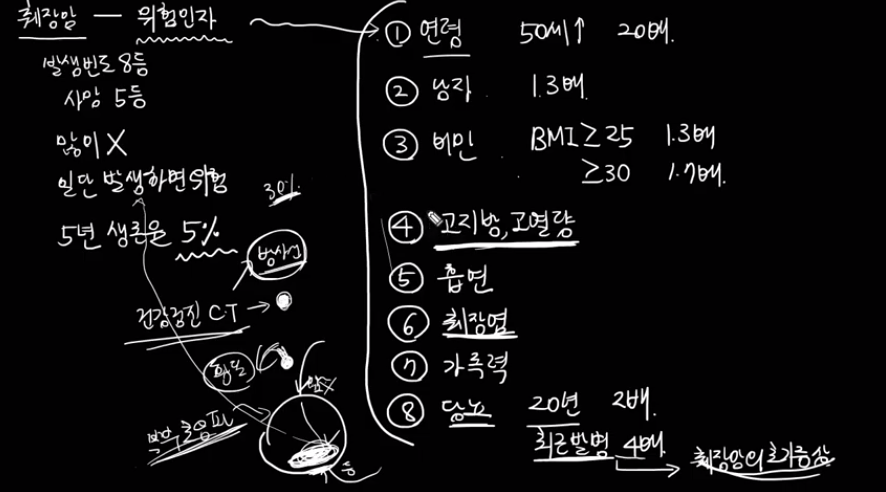 췌장암 — 위험인자
발생빈도 8등
사망 5등
많이 X
일단 발생하면 위험
30%
5년 생존율 5%
방사선
건강검진 CT →
황달
복부초음파
앞
등
① 연령 50세↑ 20배.
② 남자 1.3배.
③ 비만 BMI ≥ 25 1.3배
≥30 1.7배.
④ 고지방, 고열량
⑤ 흡연
⑥ 췌장염
⑦ 가족력
⑧ 당뇨 20년 2배.
최근발병 4배
췌장암의 초기증상